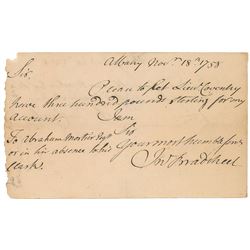 Albany Nov.r 18th 1758
Sir.
Please to let Lieut Coventry
have three hundred pounds sterling for my
account. I am
Sir
To Abraham Mortier Esqr Your most humble Servt
or in his absence to his
Clerk. Jno Bradstreet